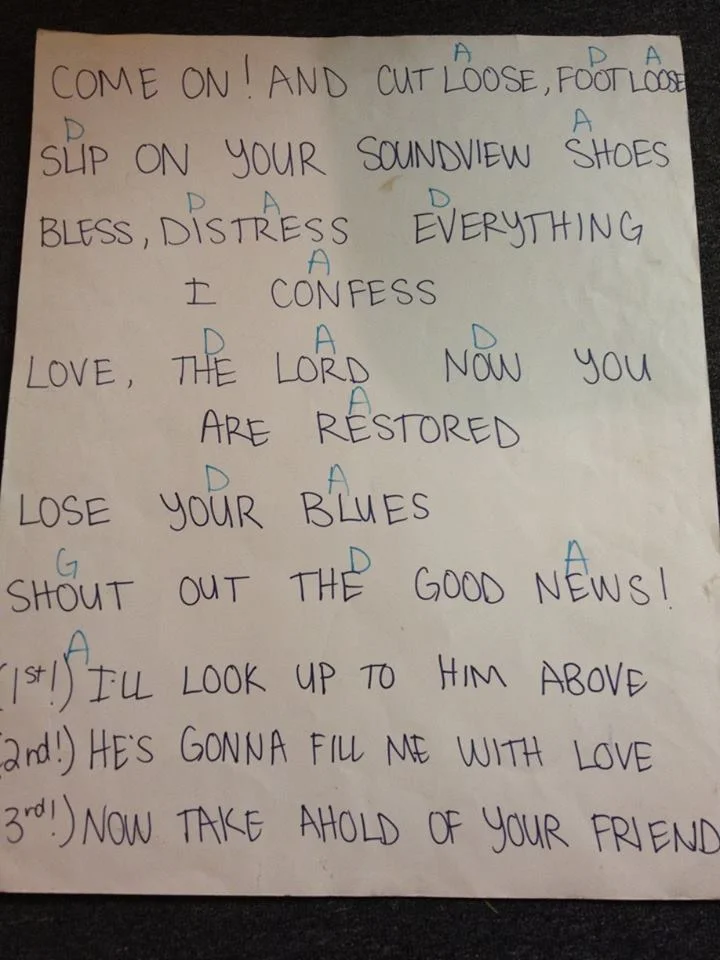 A D A
COME ON! AND CUT LOOSE, FOOTLOOSE
D A
SLIP ON YOUR SOUNDVIEW SHOES
D A D
BLESS, DISTRESS EVERYTHING
A
I CONFESS
D A D
LOVE, THE LORD NOW YOU
A
ARE RESTORED
D A
LOSE YOUR BLUES
G D A
SHOUT OUT THE GOOD NEWS!
A
(1st!) I'LL LOOK UP TO HIM ABOVE
(2nd!) HE'S GONNA FILL ME WITH LOVE
3rd!) NOW TAKE AHOLD OF YOUR FRIEND